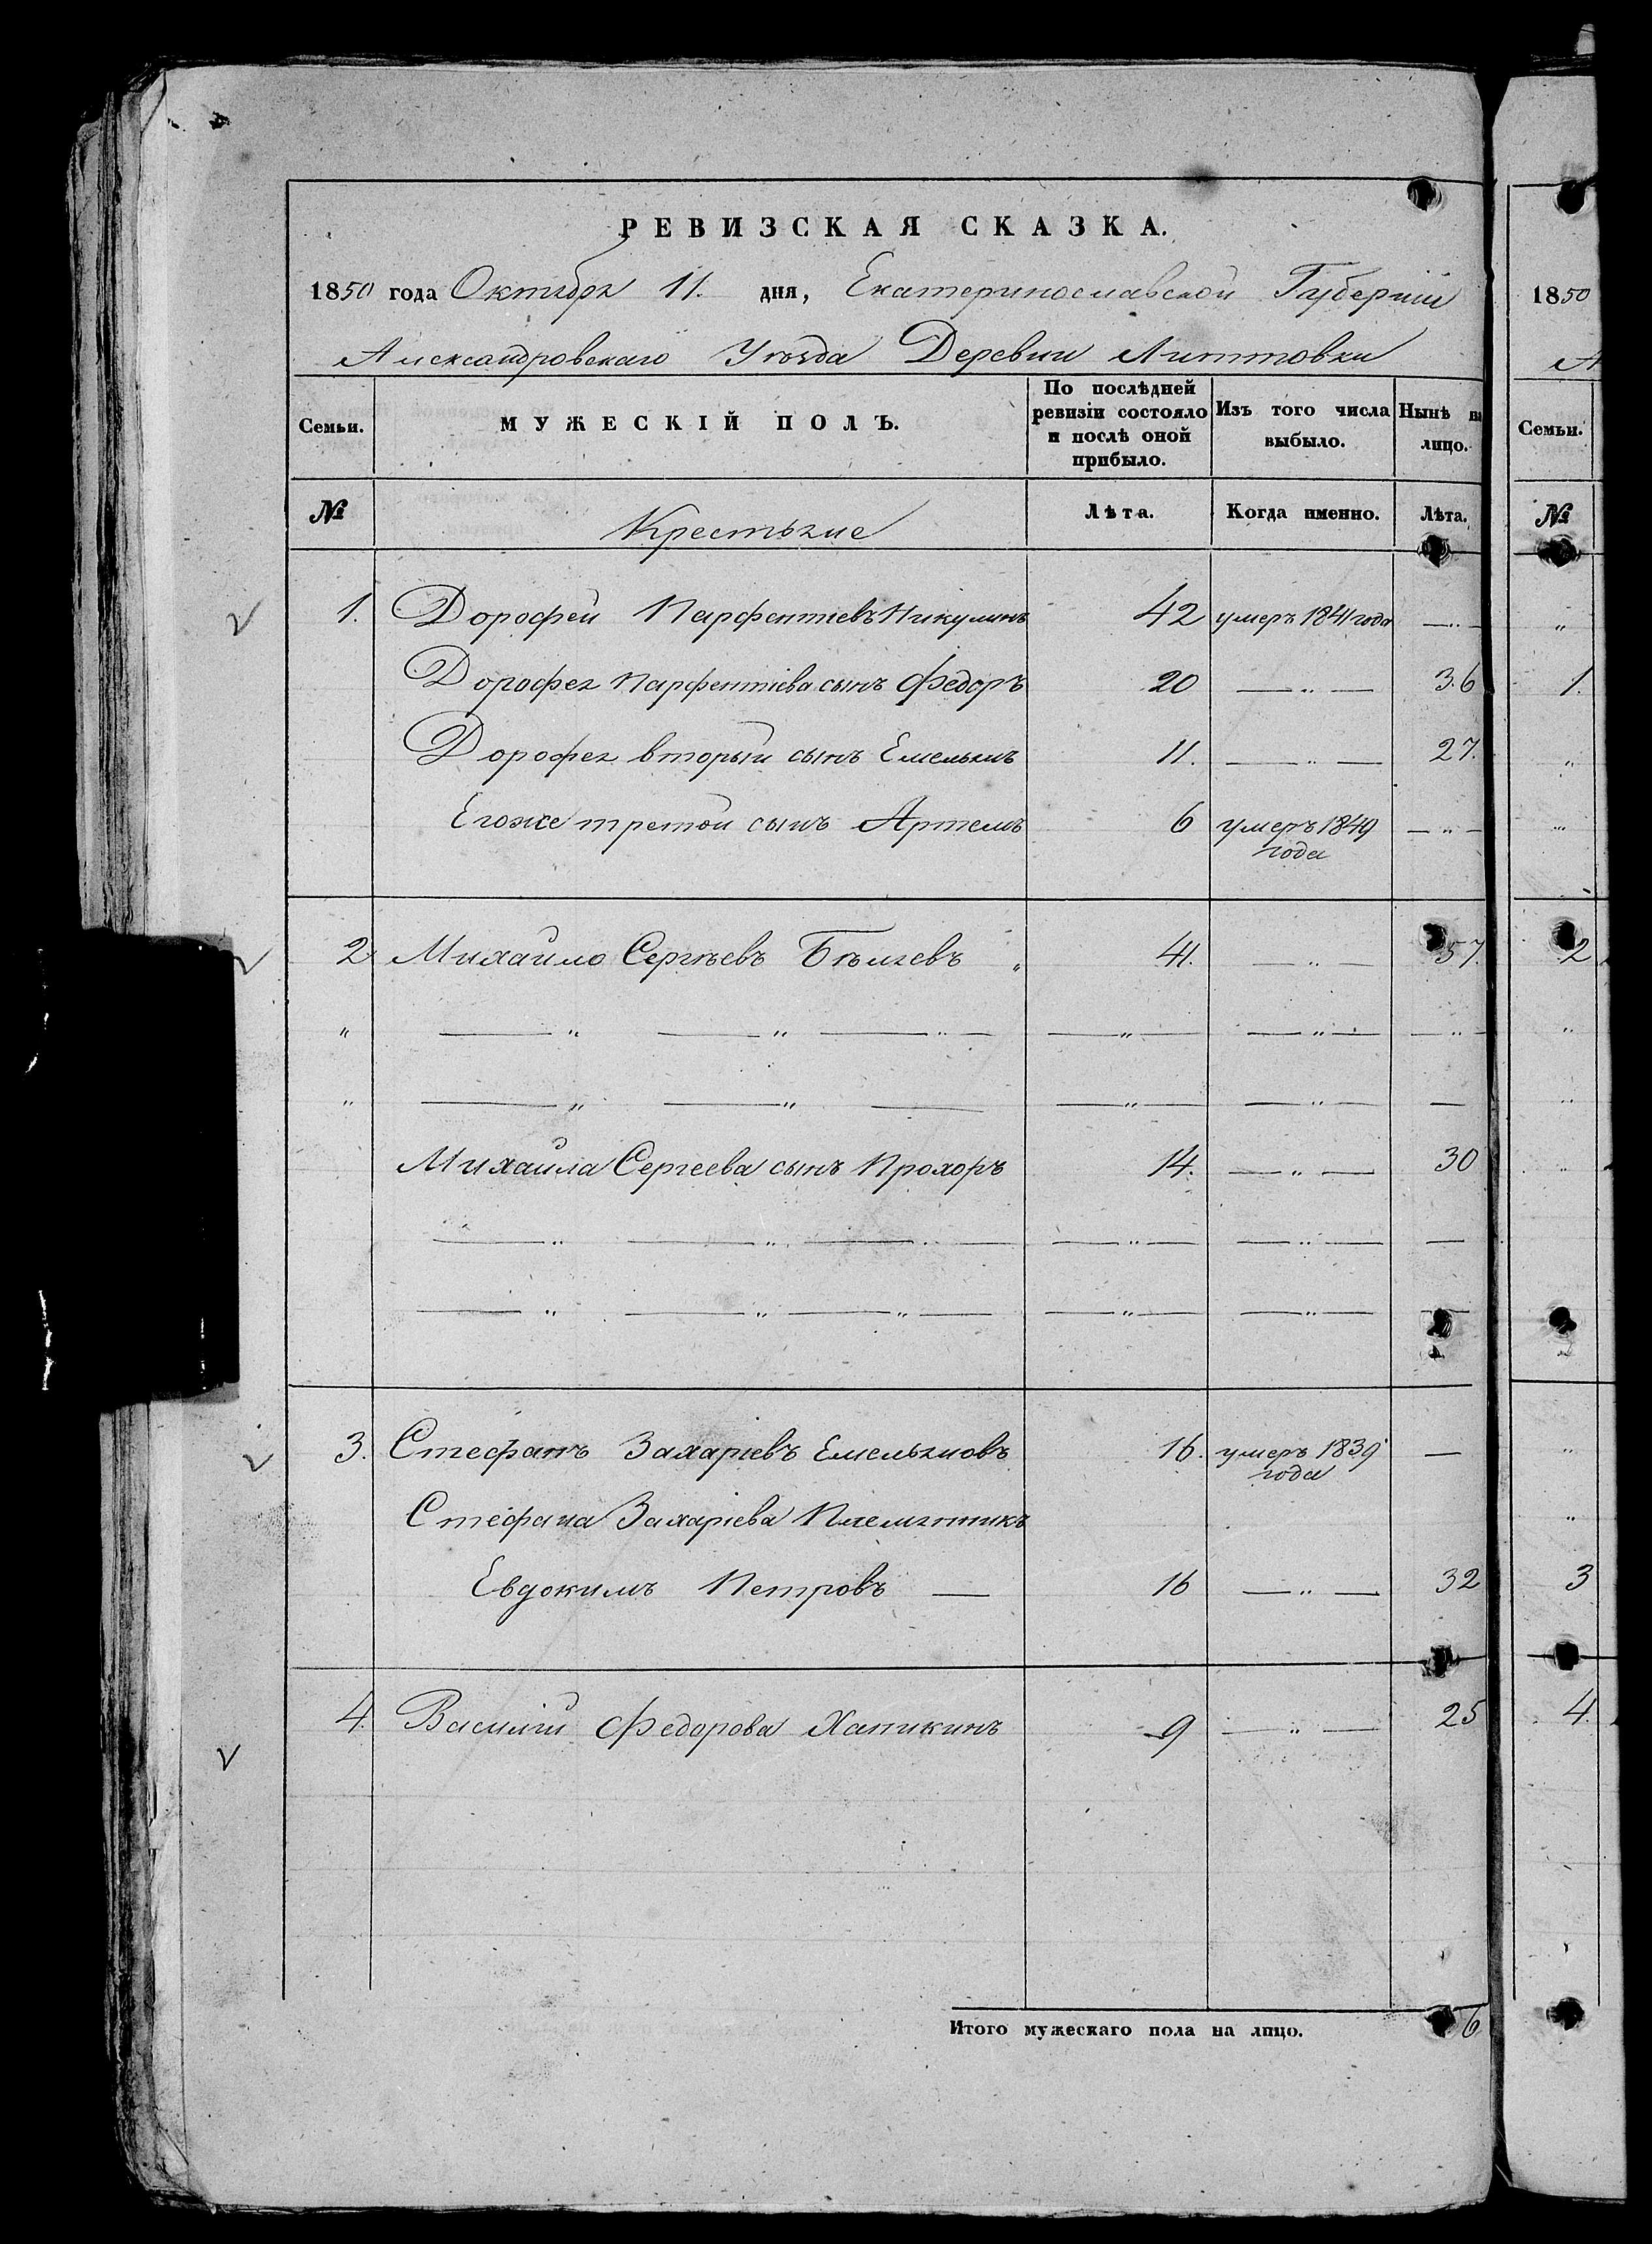 РЕВИЗСКАЯ СКАЗКА.
1850 года Октября 11. дня, Екатеринославской Губерніи
Александровскаго Уѣзда Деревни Липповки
Семьи. МУЖЕСКІЙ ПОЛЪ. По послѣдней ревизіи состояло и послѣ оной прибыло. Изъ того числа выбыло. Нынѣ на лицо.
№ Крестьяне Лѣта. Когда именно. Лѣта.
1. Дорофей Парфентіевъ Никулинъ 42 умеръ 1841 года — „ —
Дорофея Парфентіева сынъ Федоръ 20 — „ — 36
Дорофея вторый сынъ Емельянъ 11. — „ — 27.
Егоже третой сынъ Артемъ 6 умеръ 1849 года — „ —
2 Михайло Сергѣевъ Бѣляевъ „ 41. — „ — 57.
„ — „ — „ — „ — — „ — — „ — — „ —
„ — „ — „ — — „ — — „ — —
Михайла Сергеева сынъ Прохоръ 14. — „ — 30
— „ — „ — „ — — „ — — „ — —
— „ — „ — „ — — „ — — „ — —
3. Стефанъ Захаріевъ Емельяновъ 16. умеръ 1839 года —
Стефана Захаріева Племянникъ
Евдокимъ Петровъ — 16 — „ — 32
4. Василій Федорова Хапикинъ 9 — „ — 25
Итого мужескаго пола на лицо. 6
1850
А
Семьи.
№
„
1.
„
„
2
„
„
„
„
„
3
4.